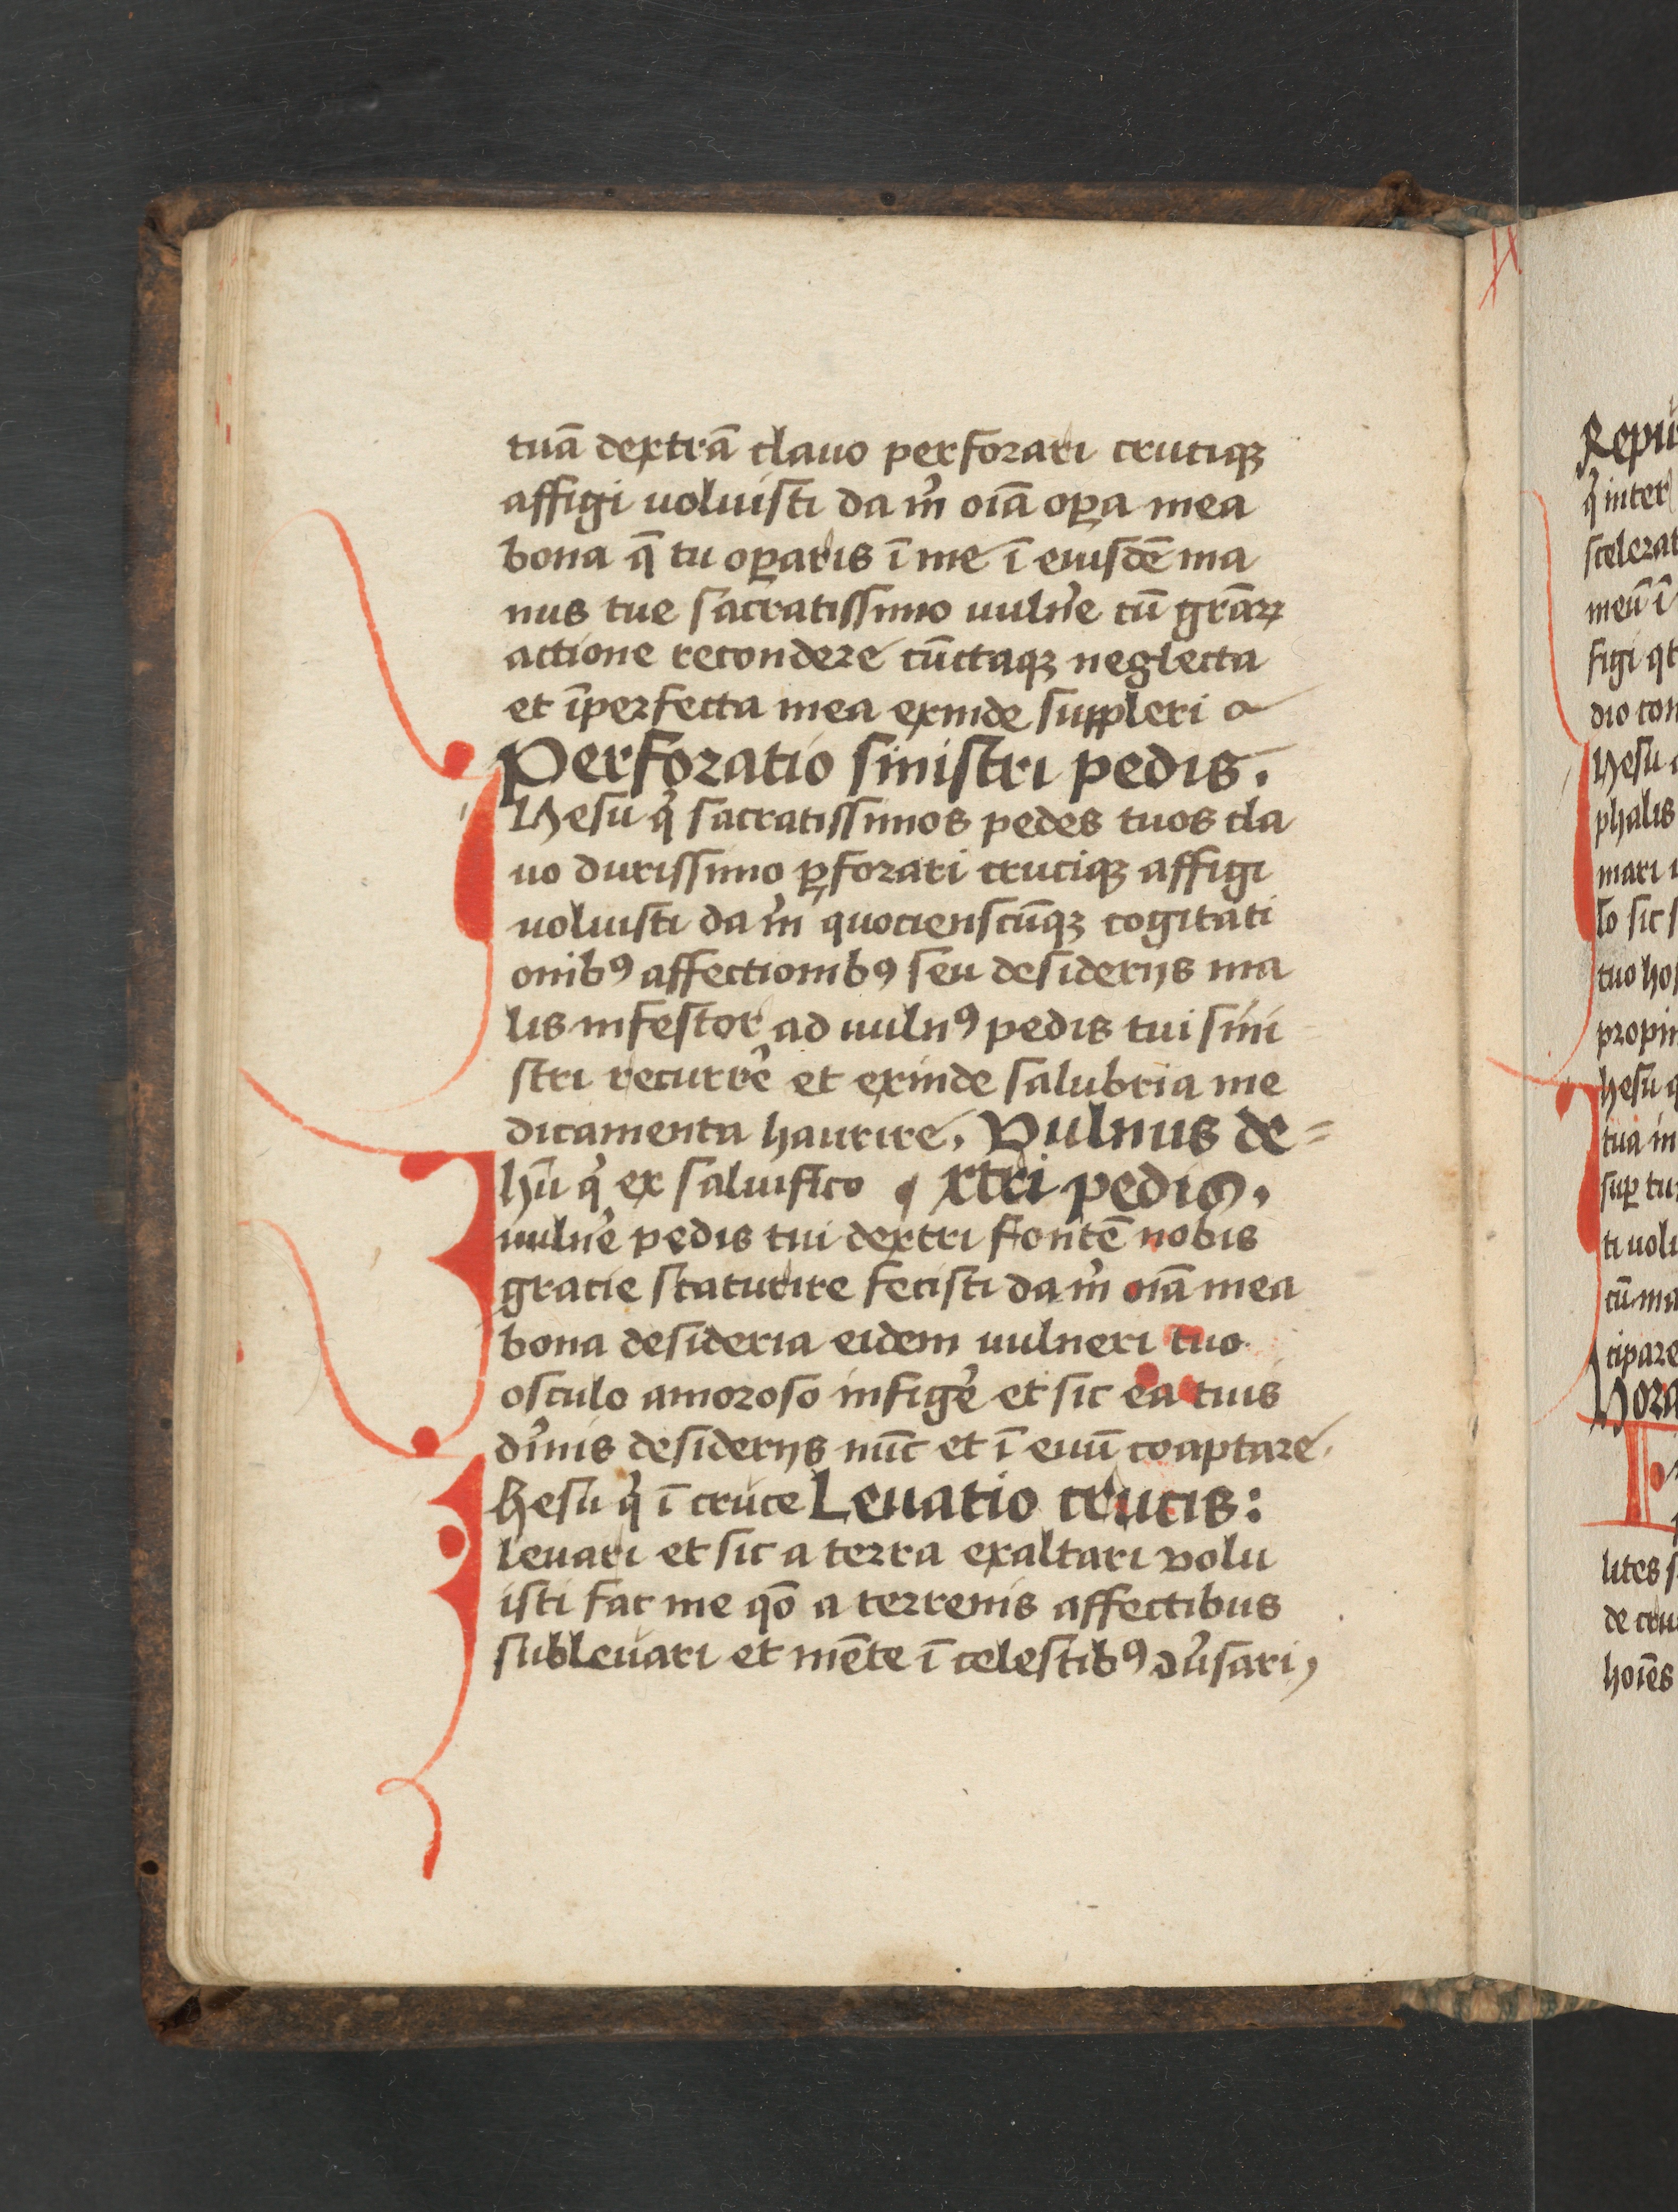 tuā dextrā clauo perforari cruciqꝫ
affigi uoluisti da m̉ oīa oꝑa mea
bona q̄ tu oꝑaris ī me ī eiusdē ma
nus tue sacratissimo uulne᷑ cū grāꝝ
actione recondere cūctaqꝫ neglecta
et īperfecta mea exinde suppleri
Perforatio sinistri pedis.
IHesu q̉ sacratissimos pedes tuos cla
uo durissimo ꝑforari cruciqꝫ affigi
uoluisti da m̉ quocienscūqꝫ cogitati
onibꝯ affectionibꝯ seu desiderijs ma
lis infestor ad uulnꝯ pedis tui sini
stri recurre᷑ et exinde salubria me
dicamenta haurire. Vulnus de=
Ihū q̉ ex saluifico ¶ xtri pedis.
uulne᷑ pedis tui dextri fontē nobis
gracie scaturire fecisti da m̉ oīa mea
bona desideria eidem uulneri tuo
osculo amoroso infige᷑ et sic ea tuis
di᷑nis desiderijs nūc et ī euū coaptare.
Ihesu q̉ ī cruce Leuatio crucis:
leuari et sic a terra exaltari volu
isti fac me qō a terrenis affectibus
subleuari et mēte ī celestibꝯ ꝯu᷑sari,
Repu
q̉ inter
scelerat
meū ī
figi qt
dio con
Ihesu
phalis
mari
lo sic s
tuo hos
propin
Ihesu q
tua in
suꝑ tu
ti uolu
cū ma
cipare
Hora
lites s
de cru
hoīes